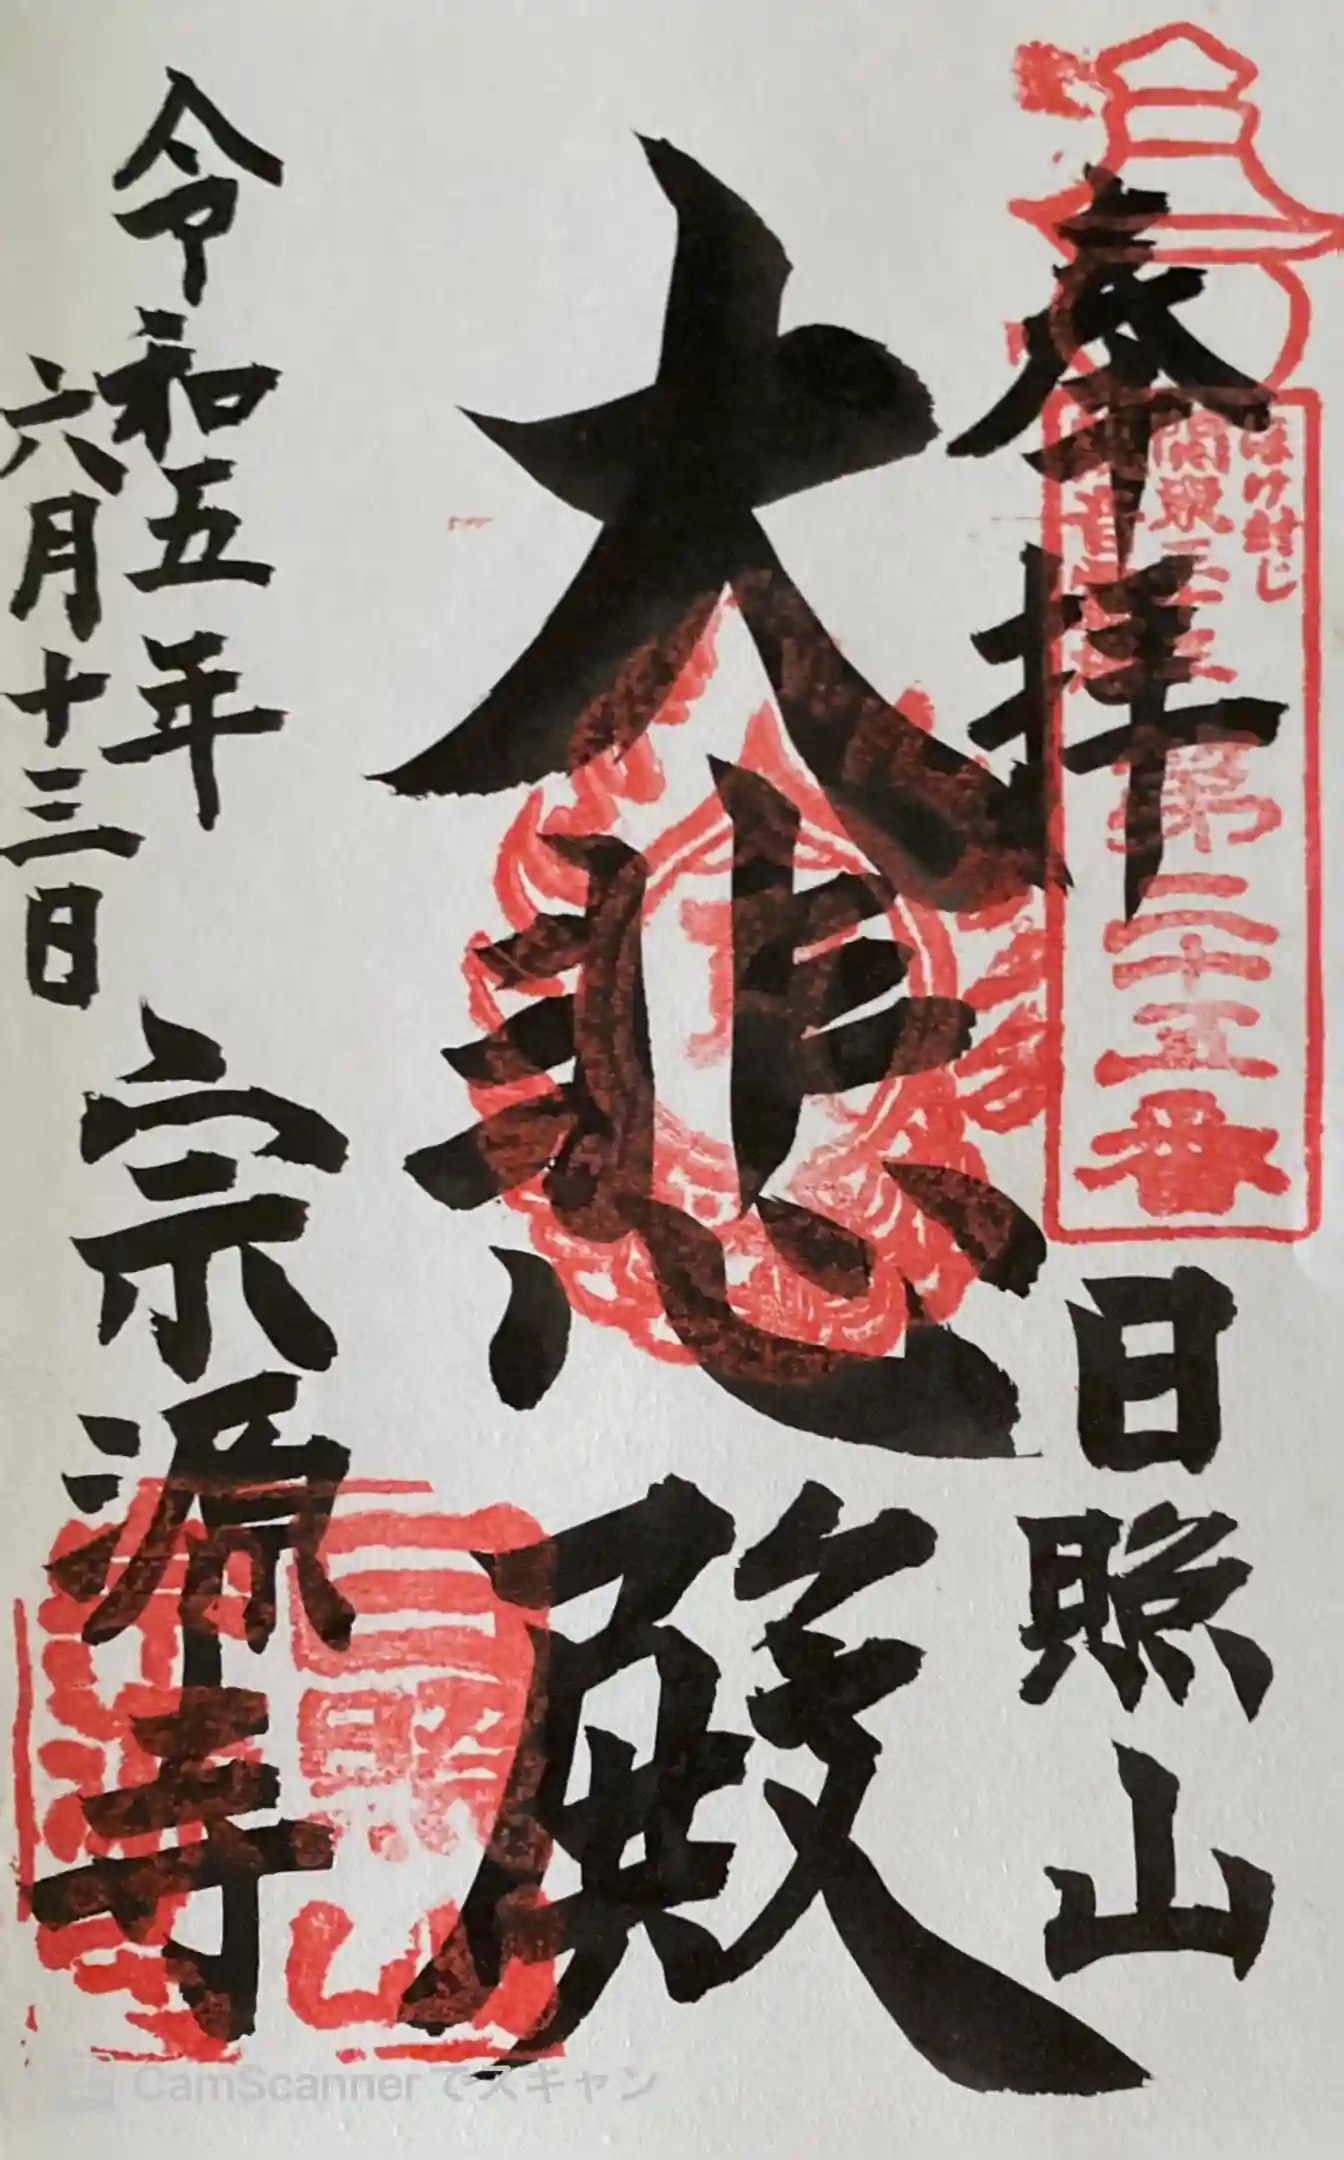 奉拝
日照山
ぼけ封じ
関東三十三
観音霊場
第二十五番
大悲殿
令和五年
六月十三日
宗源寺
日照山
CamScanner でスキャン